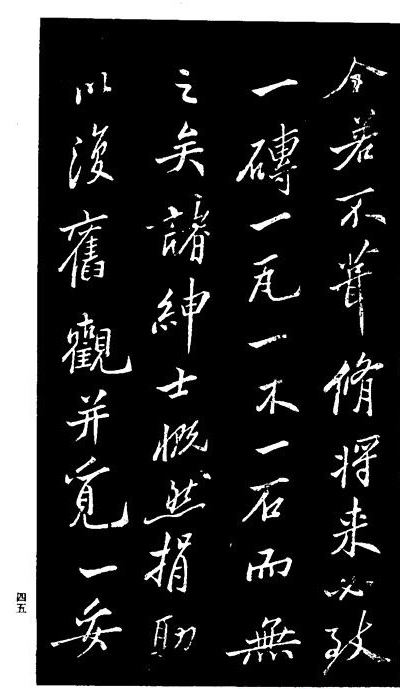 今若不葺脩将来必致
一磚一瓦一木一石而無
之矣諸紳士慨然捐助
以復舊觀并覓一妥
四五